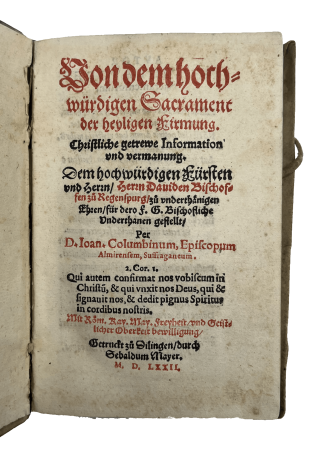 Von dem hōch-
würdigen Sacrament
der heyligen Firmung.
Christliche getrewe Information
vnd vermanung.
Dem hochwürdigen Fürsten
vnd Herrn/ Herrn Dauiden Bischof-
fen zů Regenspurg/ zů vnderthänigen
Ehren/ für dero F. G. Bischofliche
Vnderthanen gestellt/
Per
D. Ioan. Columbinum, Episcopum
Almirensem, Suffraganeum.
2. Cor. 1.
Qui autem confirmat nos vobiscum in
Christũ, & qui vnxit nos Deus, qui &
signauit nos, & dedit pignus Spiritus
in cordibus nostris.
Mit Röm. Kay. May. Freyheit/ vnd Geist-
licher Oberkeit bewilligung/
Getruckt zů Dilingen/ durch
Sebaldum Mayer.
M. D. LXXII.